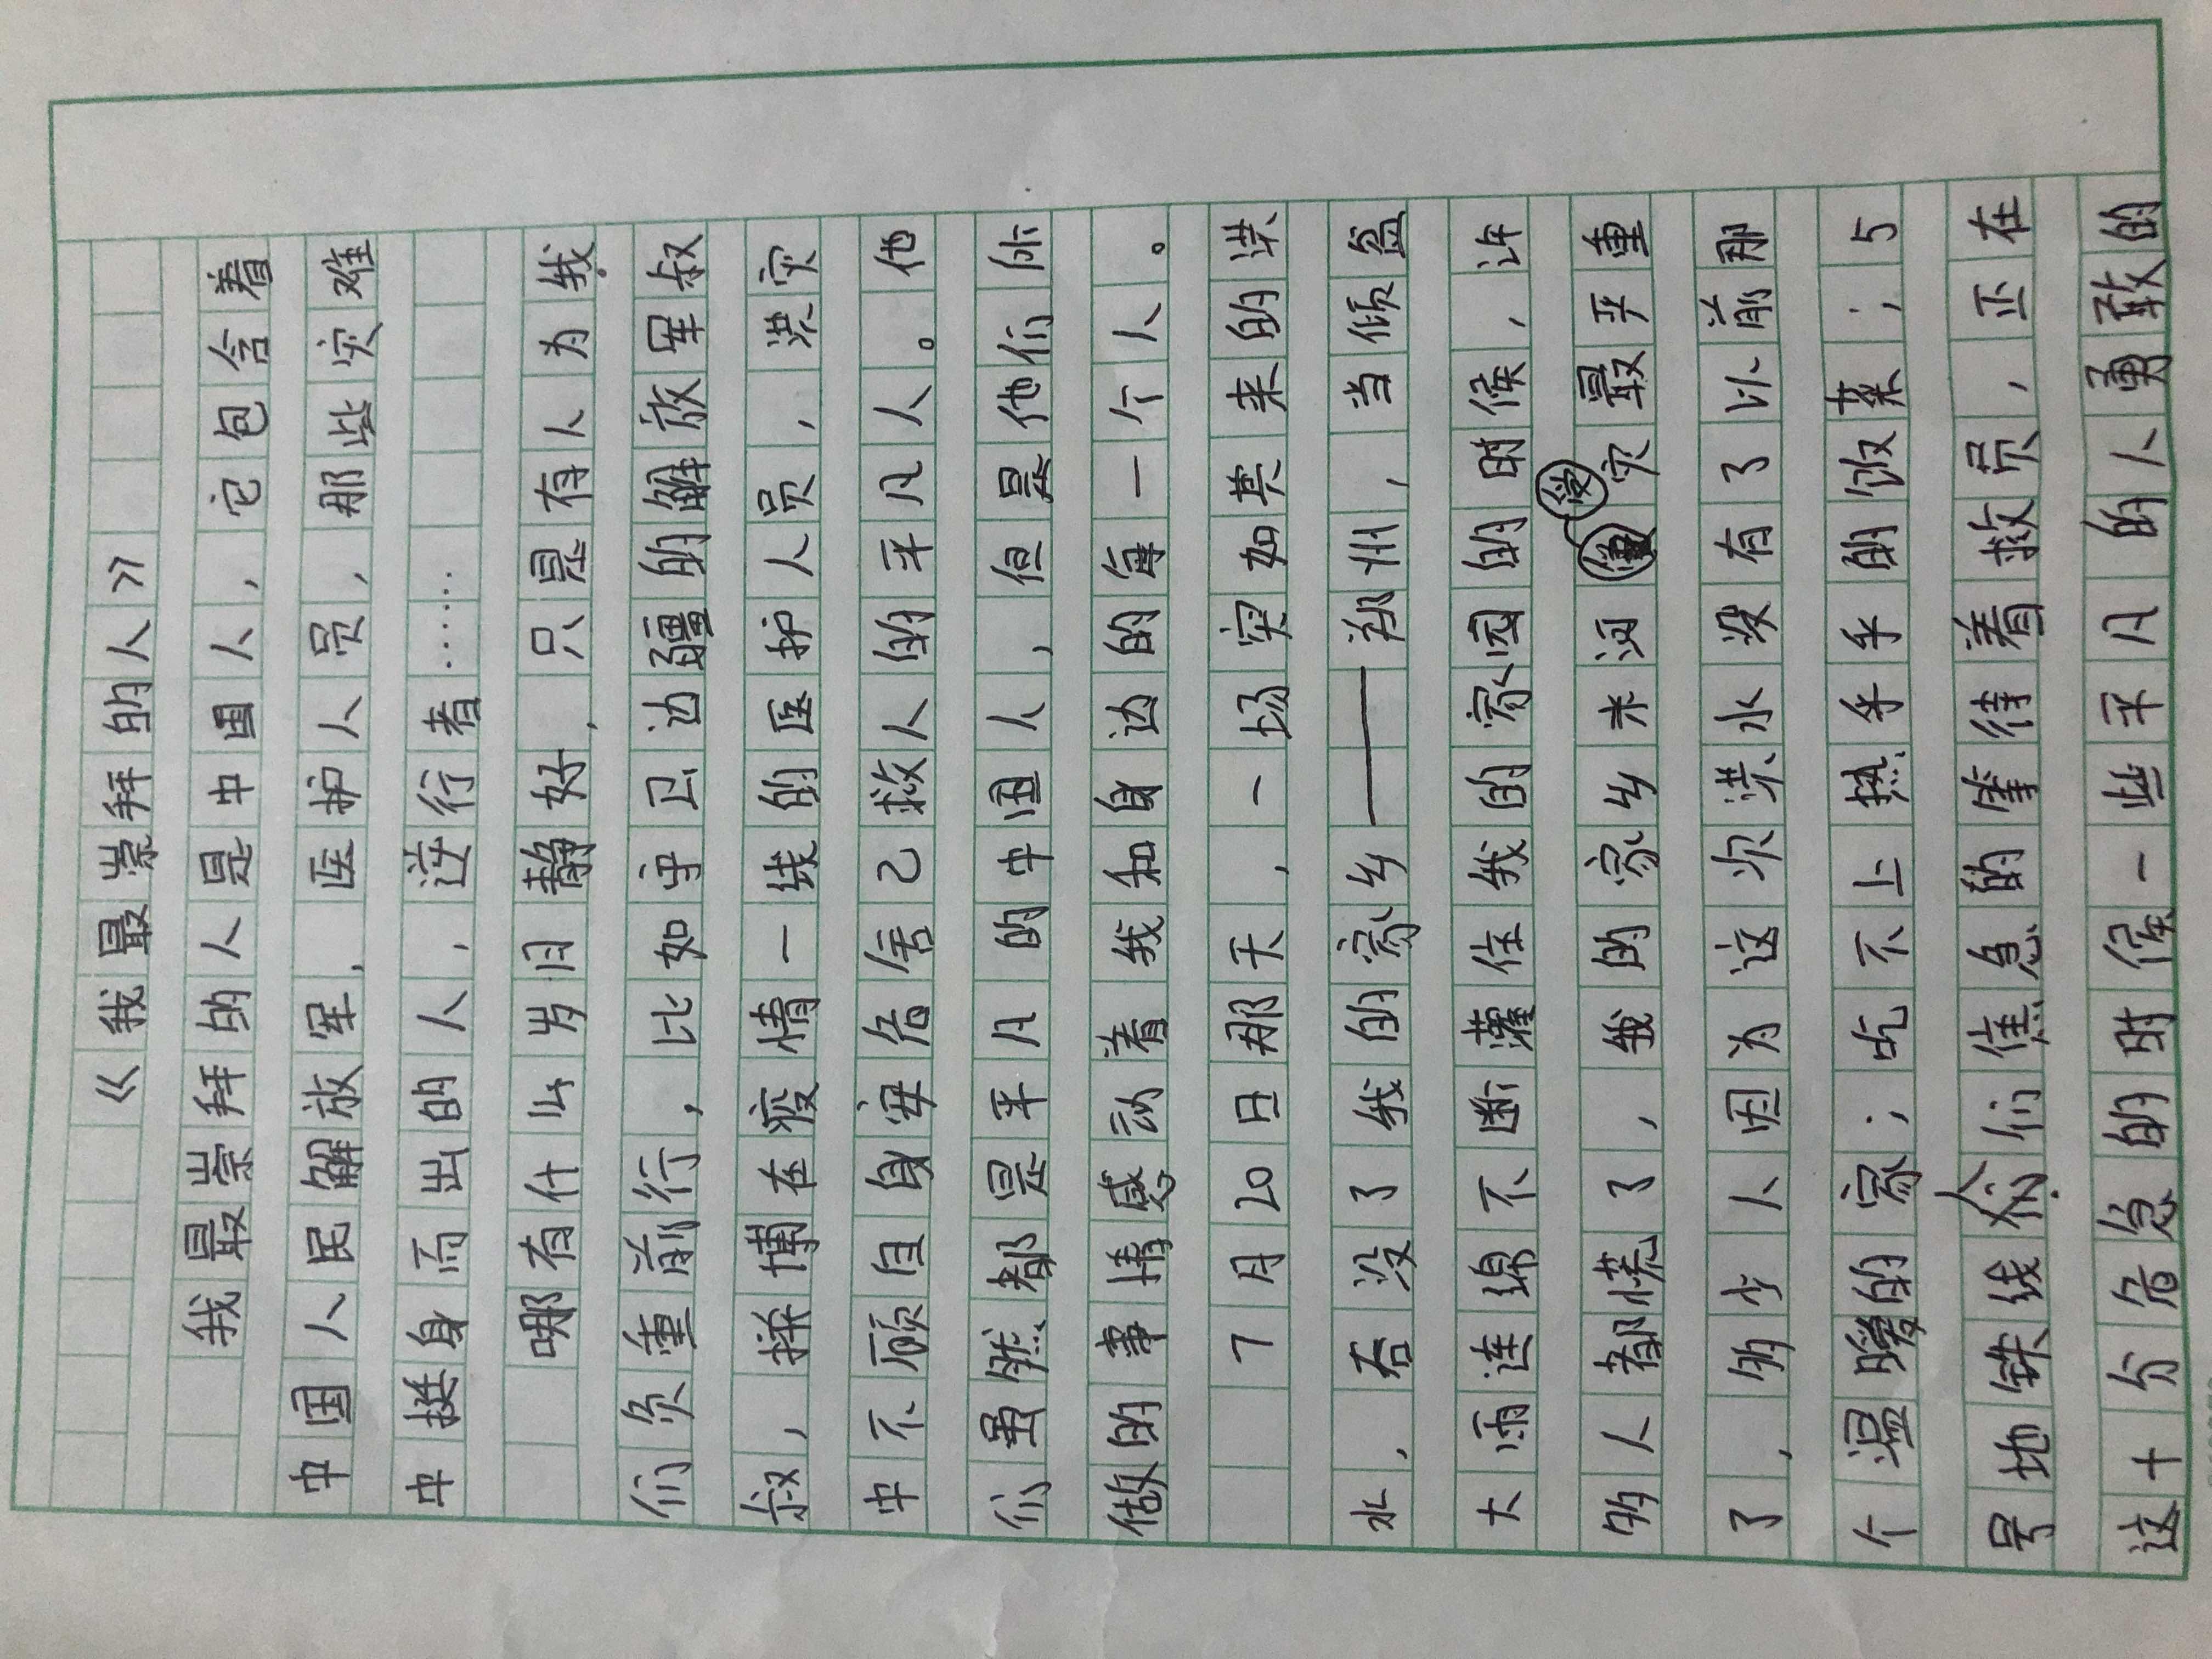 《我最崇拜的人》
我最崇拜的人是中国人，它包含着
中国人民解放军，医护人员，那些灾难
中挺身而出的人，逆行者……
哪有什么岁月静好，只是有人为我
们负重前行，比如守卫边疆的解放军叔
叔，揉博在疫情一线的医护人员，洪灾
中不顾自身安危舍己救人的平凡人。他
们虽然都是平凡的中国人，但是他们所
做的事情感动着我和身边的每一个人。
7月20日那天，一场突如其来的洪
水，吞没了我的家乡——郑州，当倾盆
大雨连绵不断灌住我的家园的时候，许
多人都慌了，我的家乡米河受灾最严重
了，多少人因为这次洪水没有了以前那
个温暖的家；吃不上热乎乎的饭菜；5
号地铁线人们焦急的等待着救员，正在
这十分危急的时候一些平凡的人勇敢的